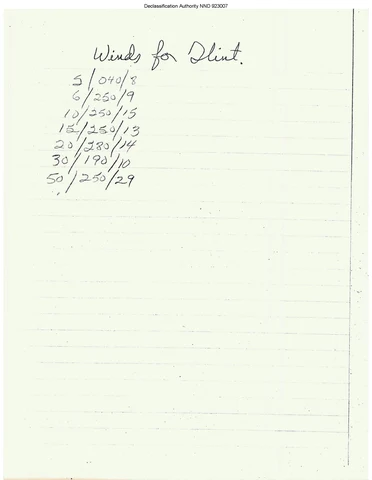 Declassification Authority NND 923007
Winds for Flint.
5/040/8
6/250/9
10/250/15
15/250/13
20/280/14
30/190/10
50/250/29